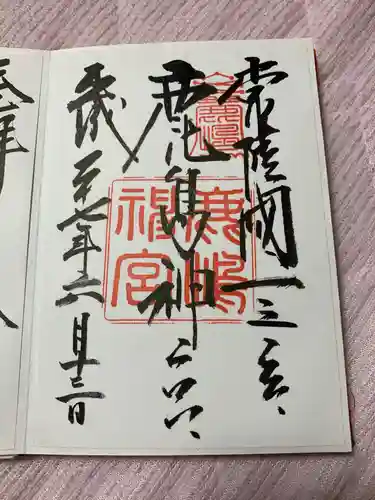 常陸國一之宮
鹿島神宮
鹿嶋
神宮
平成二十七年六月十三日
奉拝